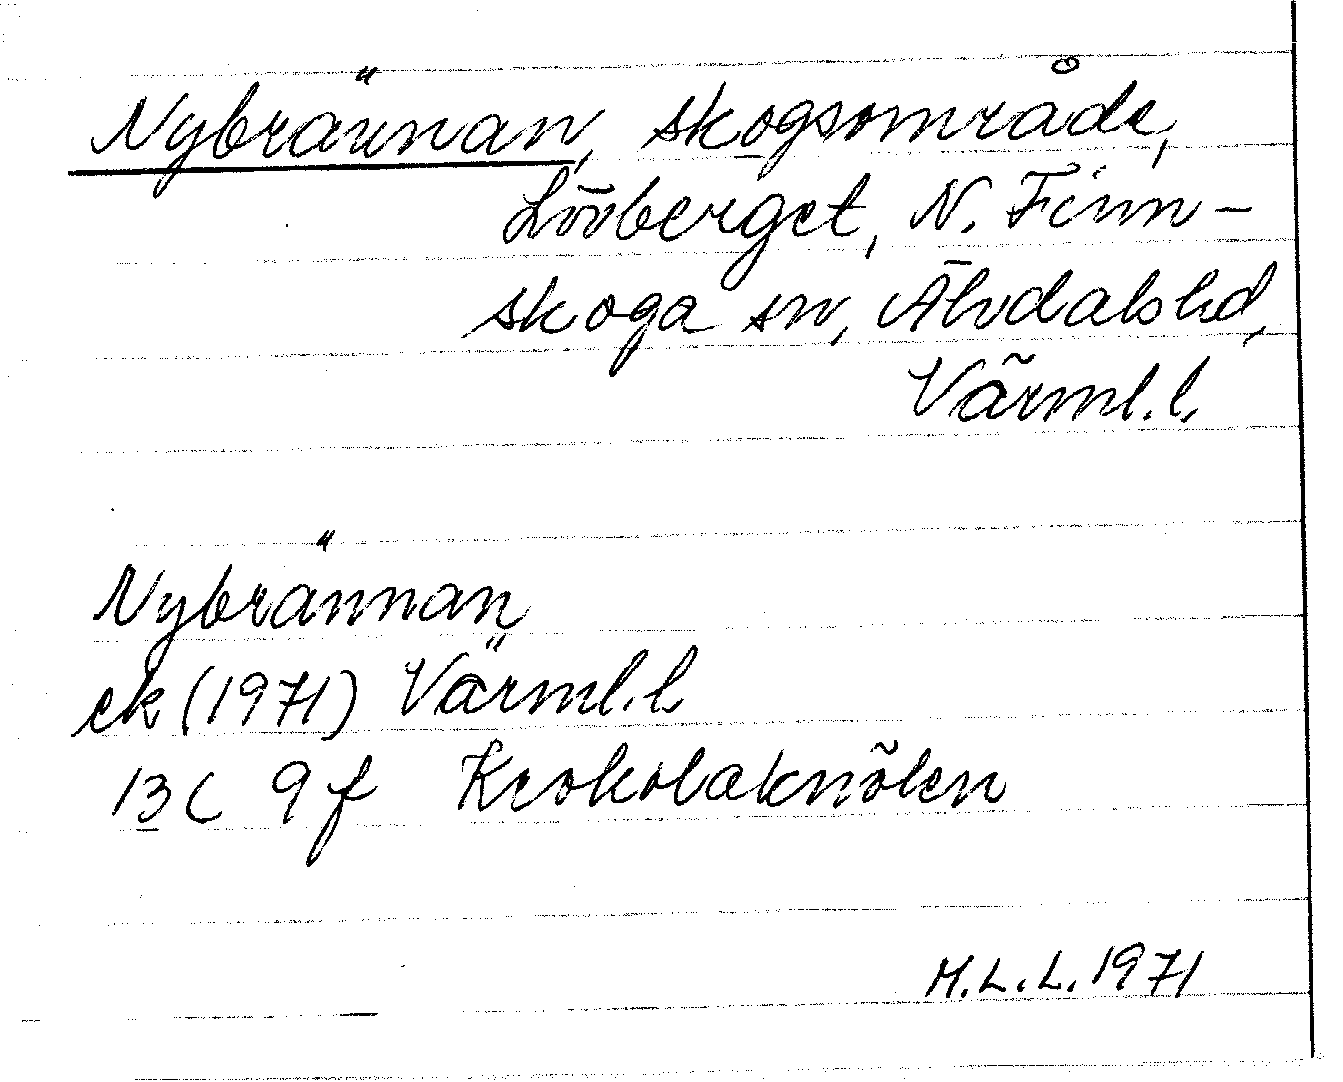 Nybrännan, skogsområde,
Lövberget, N. Finn-
skoga sn, Älvdals hd,
Värml. l.
Nybrännan
ek (1971) Värml. l.
13 C 9 f Krokolaknölen
M.L.L. 1971